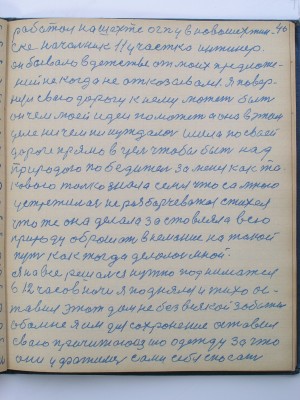 работал на шахте ОГПУ в новошахтин- 46
ске начальник 11 участка инженер.
он бывало в детстве от моих предложе-
ний не когда не отказовался. Я повер-
нул свою дорогу к нему может быт
он чем моей идеи поможет а она в этом
уме ни чем не нуждалася шла по своей
дороге прямо в цел чтобы быт над
природою победителем за меня как та
кового только знала семья что со мною
устремилася не разбарчеватся стихея
что же она делала заставляла всю
природу обратит внемание на такой
пут как тогда делалос мной.
Я навсе решался нужно поднимается
в 12 часов ночи я поднялся и тихо ос-
тавил этот дом не без всякой заботы
обо мне я им для сохронение оставил
свою причитающию одежду за что
они уважили сами себя спасат